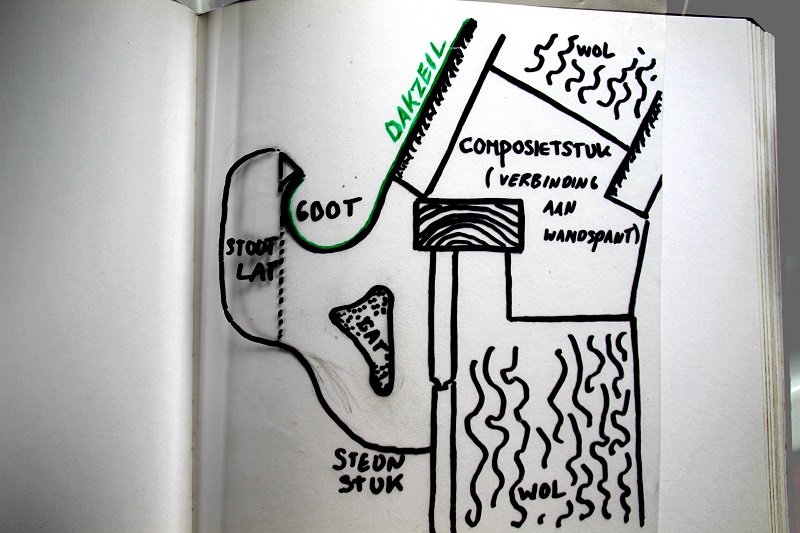 WOL
DAKZEIL
COMPOSIETSTUK
(VERBINDING
AAN
WANDSPANT)
GOOT
STOOT
LAT
GAT
STEUN
STUK
WOL